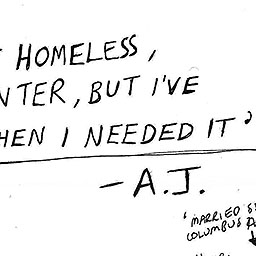 HOMELESS,
NTER, BUT I'VE
HEN I NEEDED IT"
- A.J.
'MARRIED
COLUMBUS